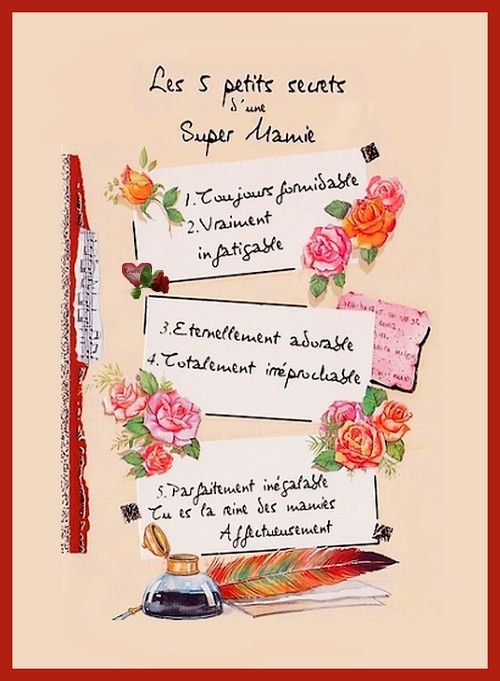 Les 5 petits secrets
d'une
Super Mamie
1. Toujours formidable
2. Vraiment
infatigable
3. Eternellement adorable
4. Totalement irréprochable
5. Parfaitement inégalable
Tu es la reine des mamies
Affectueusement